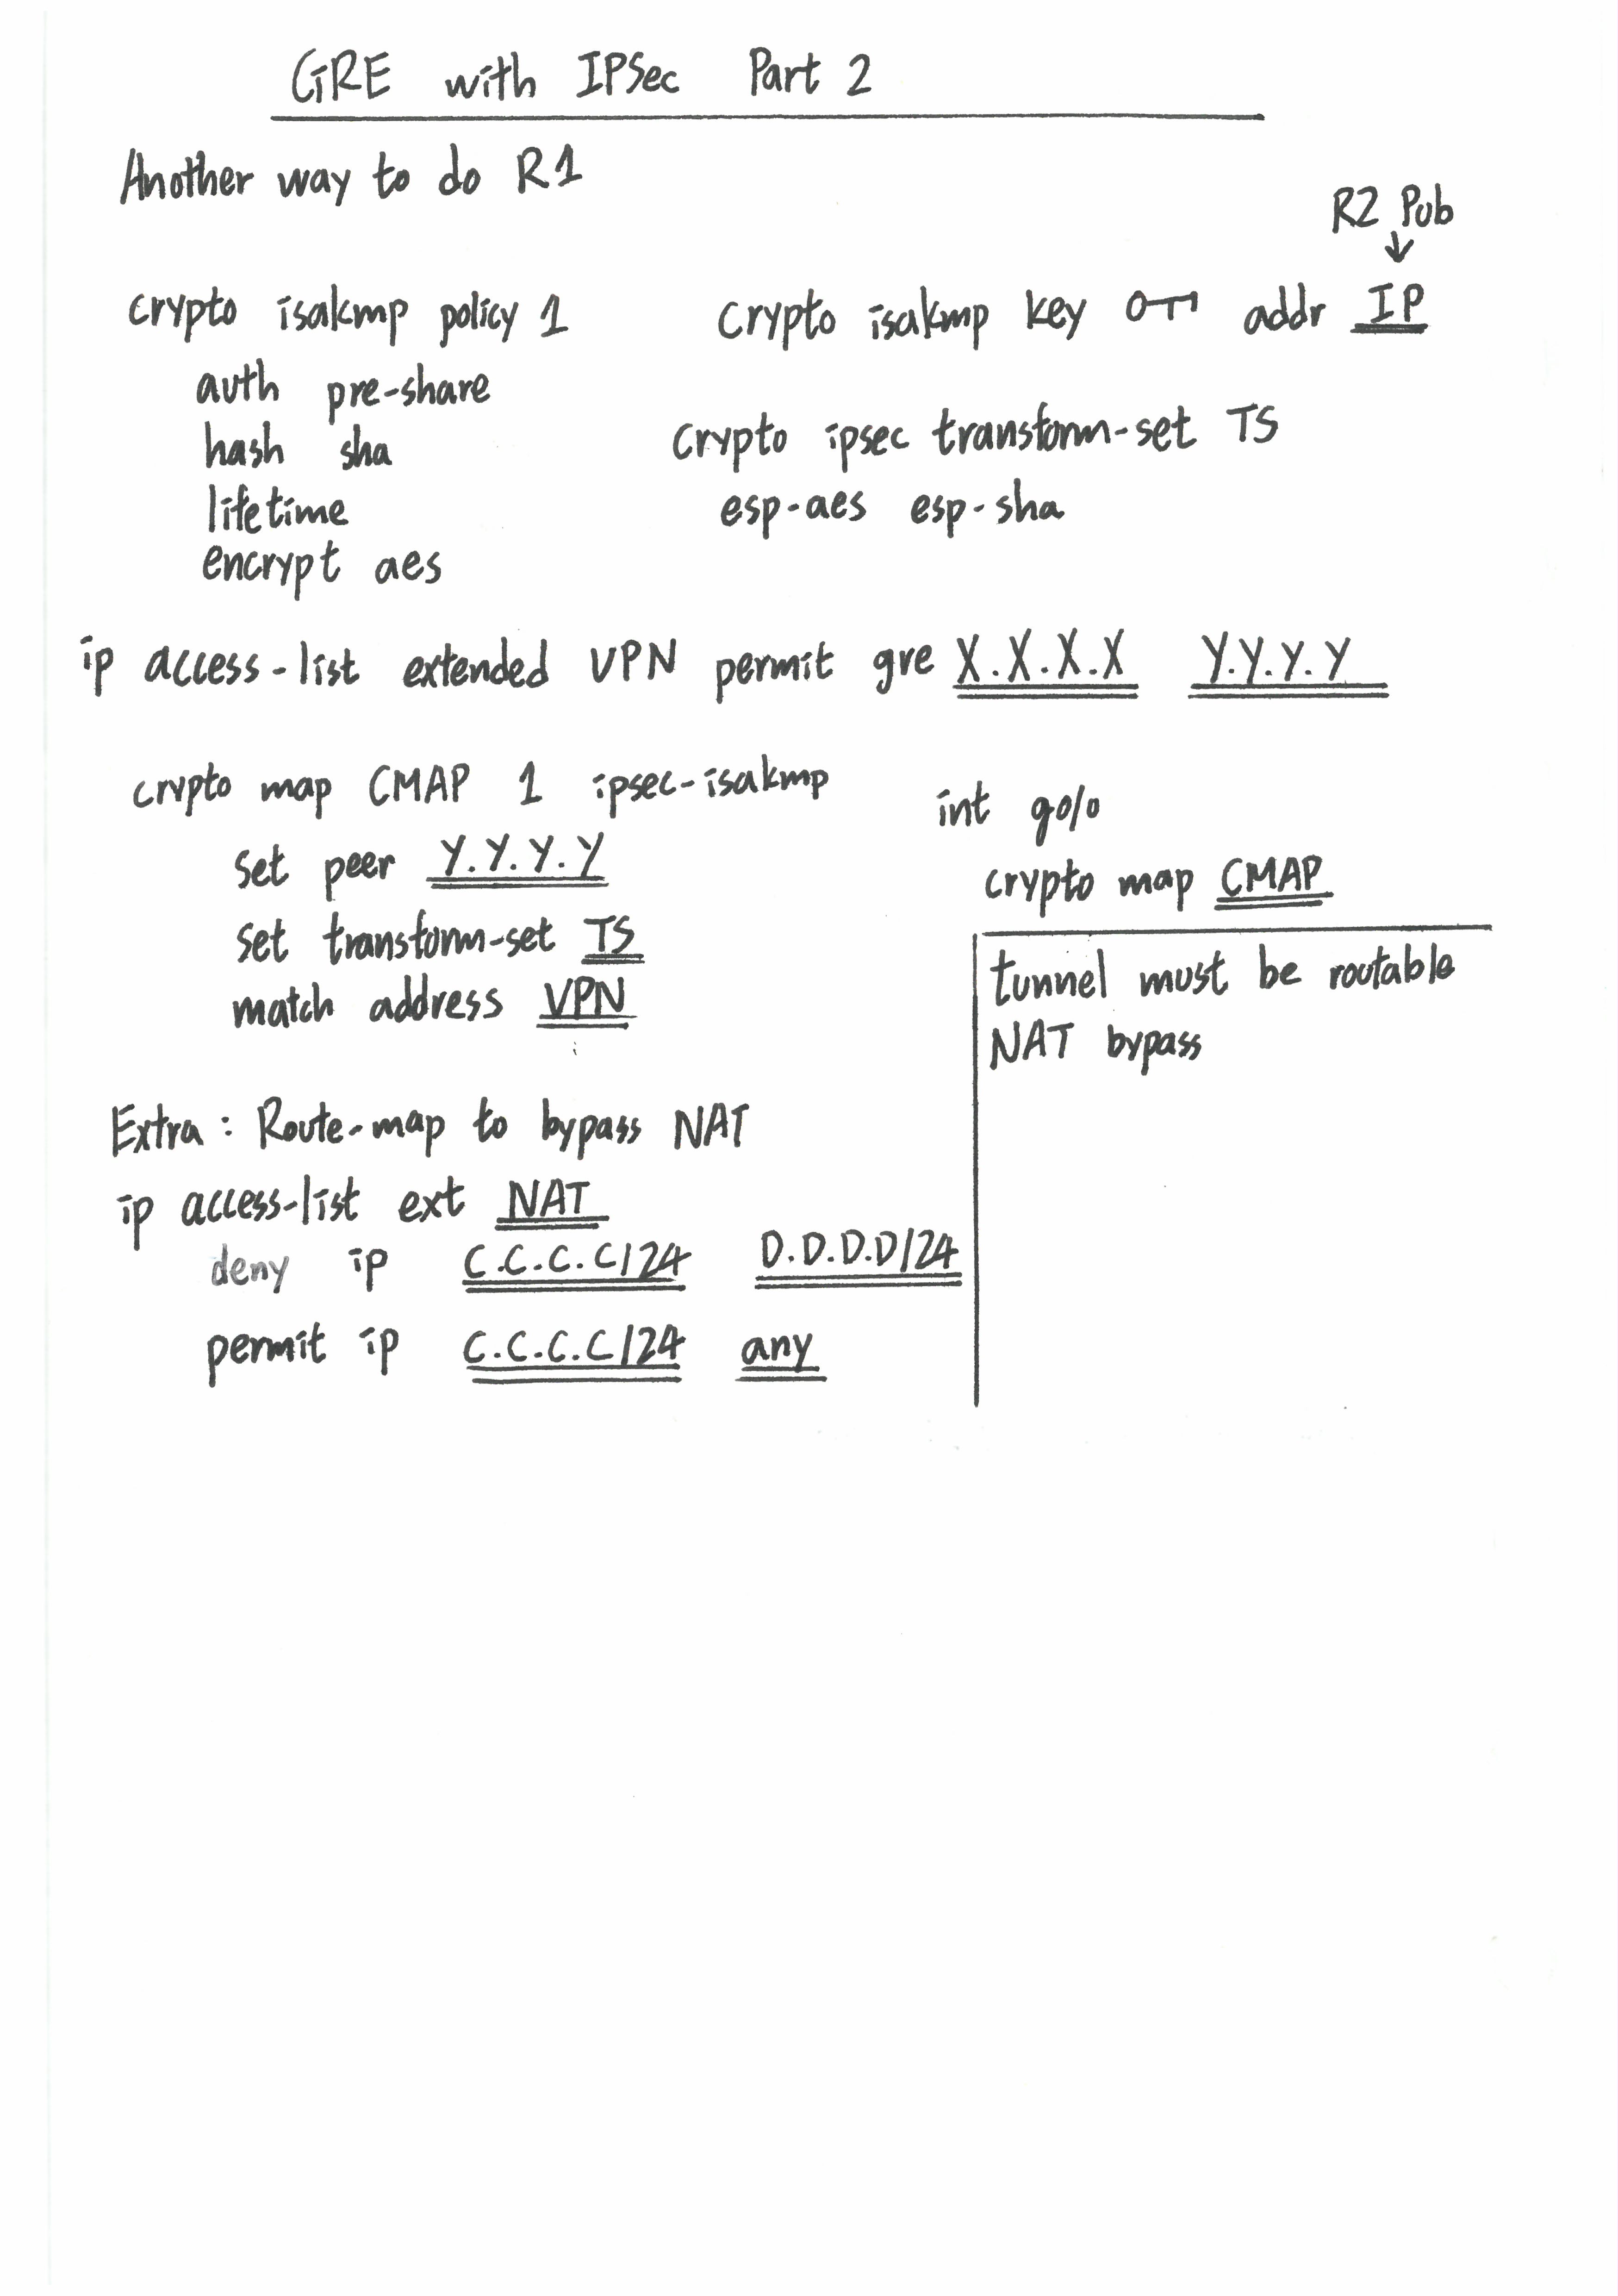 GRE with IPSec Part 2
Another way to do R1
crypto isakmp policy 1
auth pre-share
hash sha
lifetime
encrypt aes
R2 Pub
crypto isakmp key addr IP
crypto ipsec transform-set TS
esp-aes esp-sha
ip access-list extended VPN permit gre X.X.X.X Y.Y.Y.Y
crypto map CMAP 1 ipsec-isakmp
set peer Y.Y.Y.Y
set transform-set TS
match address VPN
int g0/0
crypto map CMAP
tunnel must be routable
NAT bypass
Extra: Route-map to bypass NAT
ip access-list ext NAT
deny ip C.C.C.C/24 D.D.D.D/24
permit ip C.C.C.C/24 any